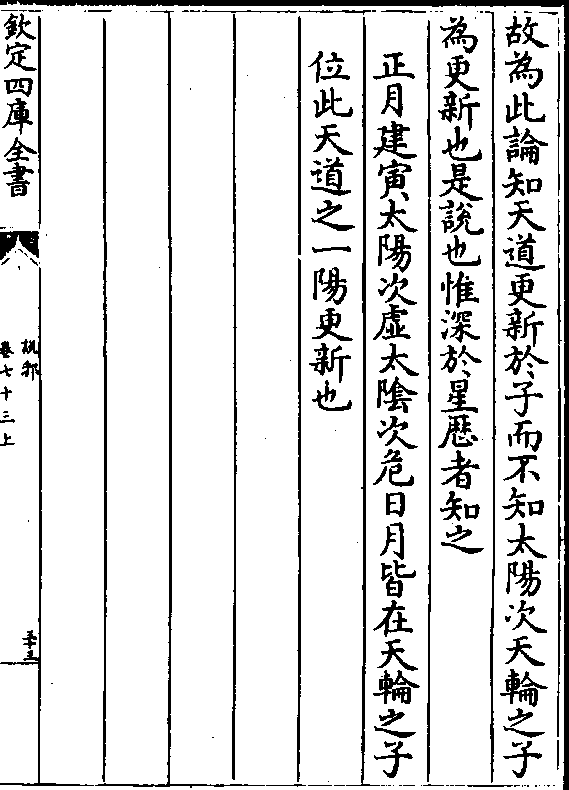 故為此論知天道更新於子而不知太陽次天輪之子
為更新也是說也惟深於星歴者知之
正月建寅太陽次虛太陰次危日月皆在天輪之子
位此天道之一陽更新也
欽定四庫全書
說郛
卷七十三上
三十五